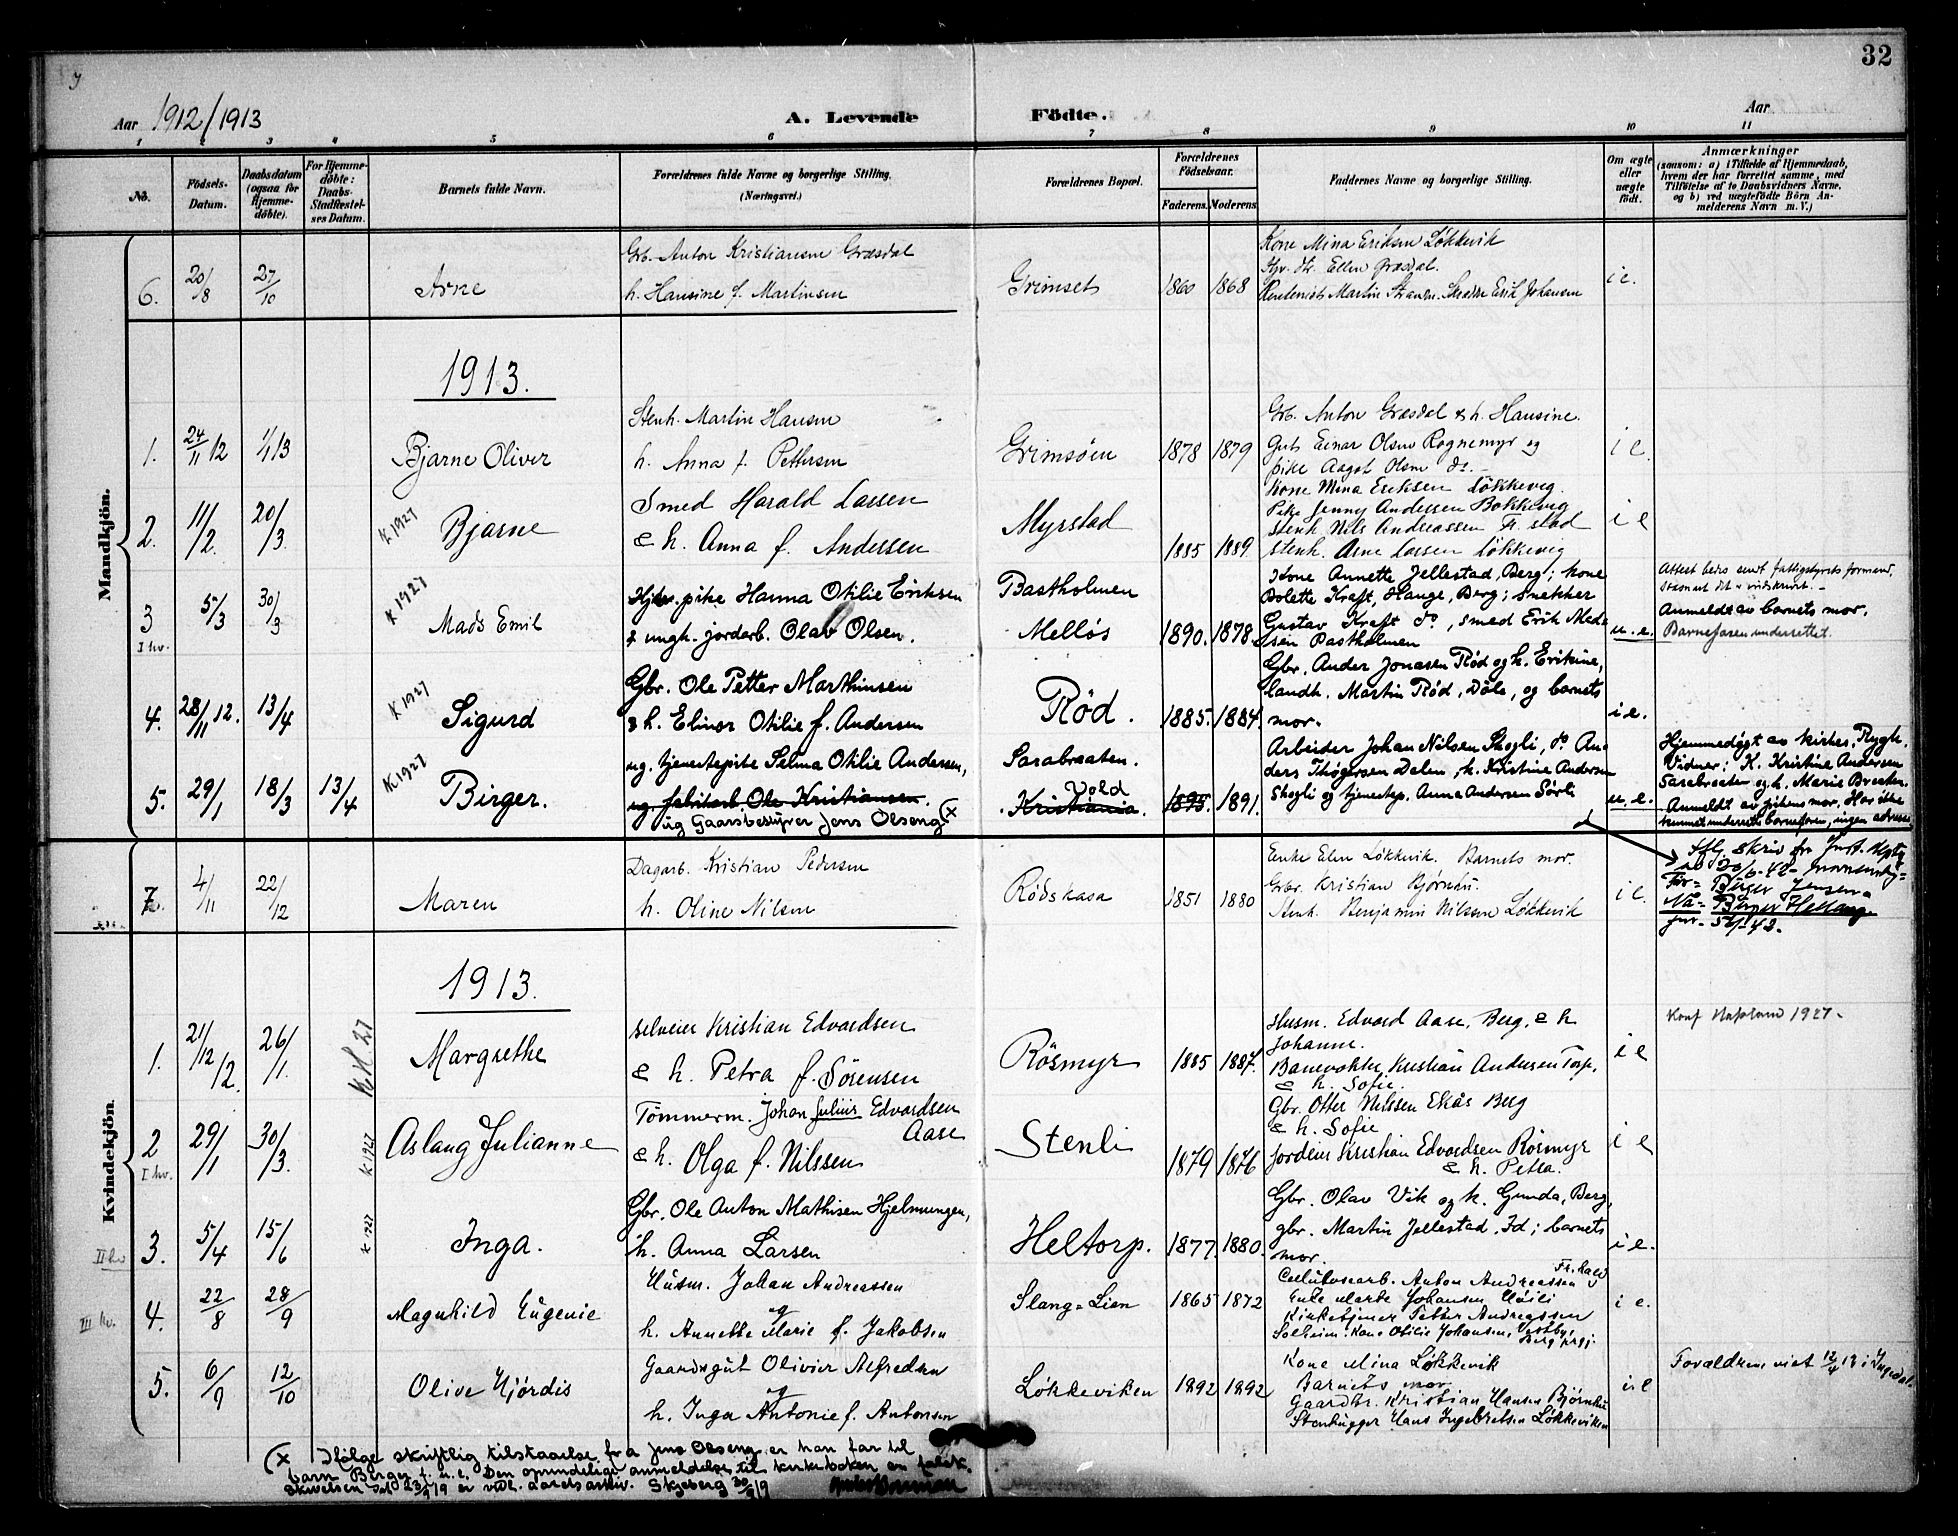 32
Aar 1912/1913
A. Levende Födte.
Aar
1 2 3 4 5 6 7 8 9 10 11
No.
Födsels-Datum.
Daabsdatum (ogsaa for Hjemme-döbte).
For Hjemme-döbte: Daabs-Stadfæstel-ses Datum.
Barnets fulde Navn.
Forældrenes fulde Navne og borgerlige Stilling.
(Næringsvei.)
Forældrenes Bopæl.
Forældrenes Födselsaar.
Faderens. Moderens.
Faddernes Navne og borgerlige Stilling.
Om ægte eller uægte födt.
Anmærkninger
(saasom: a) i Tilfælde af Hjemmedaab,
hvem der har forrettet samme, med
Tilföielse af to Daabsvidners Navne,
og b) ved uægtefödte Börn An-
melderens Navn m. V.)
Mandkjön.
6. 20/8 27/10 Arne
Grb. Anton Kristiansen Græsdal
h. Hansine f. Martinsen
Grimset 1860 1868
Kone Mina Eriksen Løkkevik
Ellen Græsdal.
Martin Erik Johansen
i e.
1913.
1. 24/11 12 1/1 13 Bjarne Oliver
Stenh. Martin Hansen
h. Anna f. Pettersen
Grimsöen 1878 1879
Grb. Anton Græsdal & h. Hansine.
Gut Einar Olsen Rognemyr og
pike Aagot Olsen do. -
i e.
2. 11/2. 20/3. K 1927 Bjarne
Smed Harald Larsen
e h. Anna f. Andersen
Myrstad 1885 1889.
Kone Mina Eriksen Lökkevig.
Pike Jenny Andersen Bokkevig
Stenh Nils Andreassen Fr. stad
Stenh. Arne Larsen Lökkevig
i e
3 I hv. 5/3 30/3 K 1927 Mads Emil
pike Hanna Otilie Eriksen
& ungk. jordarb. Olav Olsen.
Bastholmen
Mellös 1890. 1878.
Kone Annette Jellestad, Berg; kone
Bolette Kraft, Hauge, Berg; snekker
Gustav Kraft do, smed Erik Mad-
sen Bastholmen
u. e.
Attest
Anmeldt av barnets mor.
Barnefaren underrettet.
4. 28/11 12. 13/4 K 1927 Sigurd
Gbr. Ole Petter Marthinsen
& h. Elinor Otilie f. Andersen
Röd. 1885. 1884.
Gbr. Ander Jonasen Röd og h. Erikine,
landh. Martin Röd, Döle, og barnets
mor.
i e.
5. 29/1 18/3 13/4 K 1927 Birger.
ug. tjenestepike Selma Otilie Andersen,
ug. fabrikarb. Ole Kristiansen.
ug Gaarsbestyrer Jens Olseng (x
Sarabraaten.
Vold
Kristiania. 1895. 1891.
Arbeider Johan Nilsen Skogli, do An-
ders Thögersen Dalen, h. Kristine Andersen
Skogli og tjenestep. Anna Andersen Sörli
u. e.
Hjemmedøpt av kirkes. Rygh.
Vidner: K. Kristine Andersen
Sarabraaten og h. Marie Braaten.
Anmeldt av pikens mor. Har ikke
kunnet underrette barnefaren, ingen adresse
Iflg. skriv fra Just. dept.
Før- Birger Jensen-
Nå- Birger Hellang.
Kvindekjön.
7. 4/11 22/12 Maren
Dagarb. Kristian Pedersen
h. Oline Nilsen
Rödskasa 1851 1880
Enke Elen Løkkevik. Barnets mor.
Grbr. Kristian Bjørnhu.
Stenh. Benjamin Nilssen Løkkevik
i e.
1913.
1. 21/12 12. 26/1. Margrethe
Selveier Kristian Edvardsen
e h. Petra f. Sörensen
Rösmyr 1885 1887.
Husm. Edvard Aase, Berg, e h
Johanne.
Banevokter Kristian Andersen Torp,
e h. Sofie.
i e
Konf 1927.
2 I hv. 29/1 30/3. K 1927 Aslaug Julianne
Tömmerm. Johan Julius Edvardsen
Aase
e h. Olga f. Nilssen
Stenli 1879 1876
Gbr. Otter Nilssen Ekås Berg
e h. Sofie
Jordeier Kristian Edvardsen Rösmyr
e h. Petra.
i e
II hv 3. 5/4 15/6 K 1927 Inga.
Gbr. Ole Anton Mathisen Hjelmungen,
h. Anna Larsen
Heltorp. 1877. 1880.
Gbr. Olav Vik og h. Gunda, Berg,
gbr. Martin Jellestad, Id; barnets
mor.
i e.
III hv. 4. 22/8 28/9 Magnhild Eugenie
Husm. Johan Andreassen
og
h. Annette Marie f. Jakobsen
Slange-Lien 1865 1872
Fr. hald
Cellulosearb. Anton Andreassen
Enke Marte Johansen
Kirketjener Petter Andreassen
Solheim. Kone Otilie Johansen, Vestby,
Berg prgj.
i e.
5. 6/9 12/10 Olive Hjördis
Gaardsgut Olivier Alfredsen
og
h. Inga Antonie f. Antonsen
Lökkeviken 1892 1892
Kone Mina Løkkevik
Barnets mor
Gaardbr. Kristian Hansen Björnhu
Stenhugger Hans Ingebretsen Lökkeviken
i e
Forældrene viet 12/4 13 i Ingedal.
(x Ifölge skriftlig tilstaaelse fra Jens Olseng er han far til
barn Berger f. u. e. Den oprindelige anmeldelse til kirkeboken er falsk.
Skrivelsen dat 23/9 19 er vedl. aaretsarkiv. Skjeberg 30/9 19